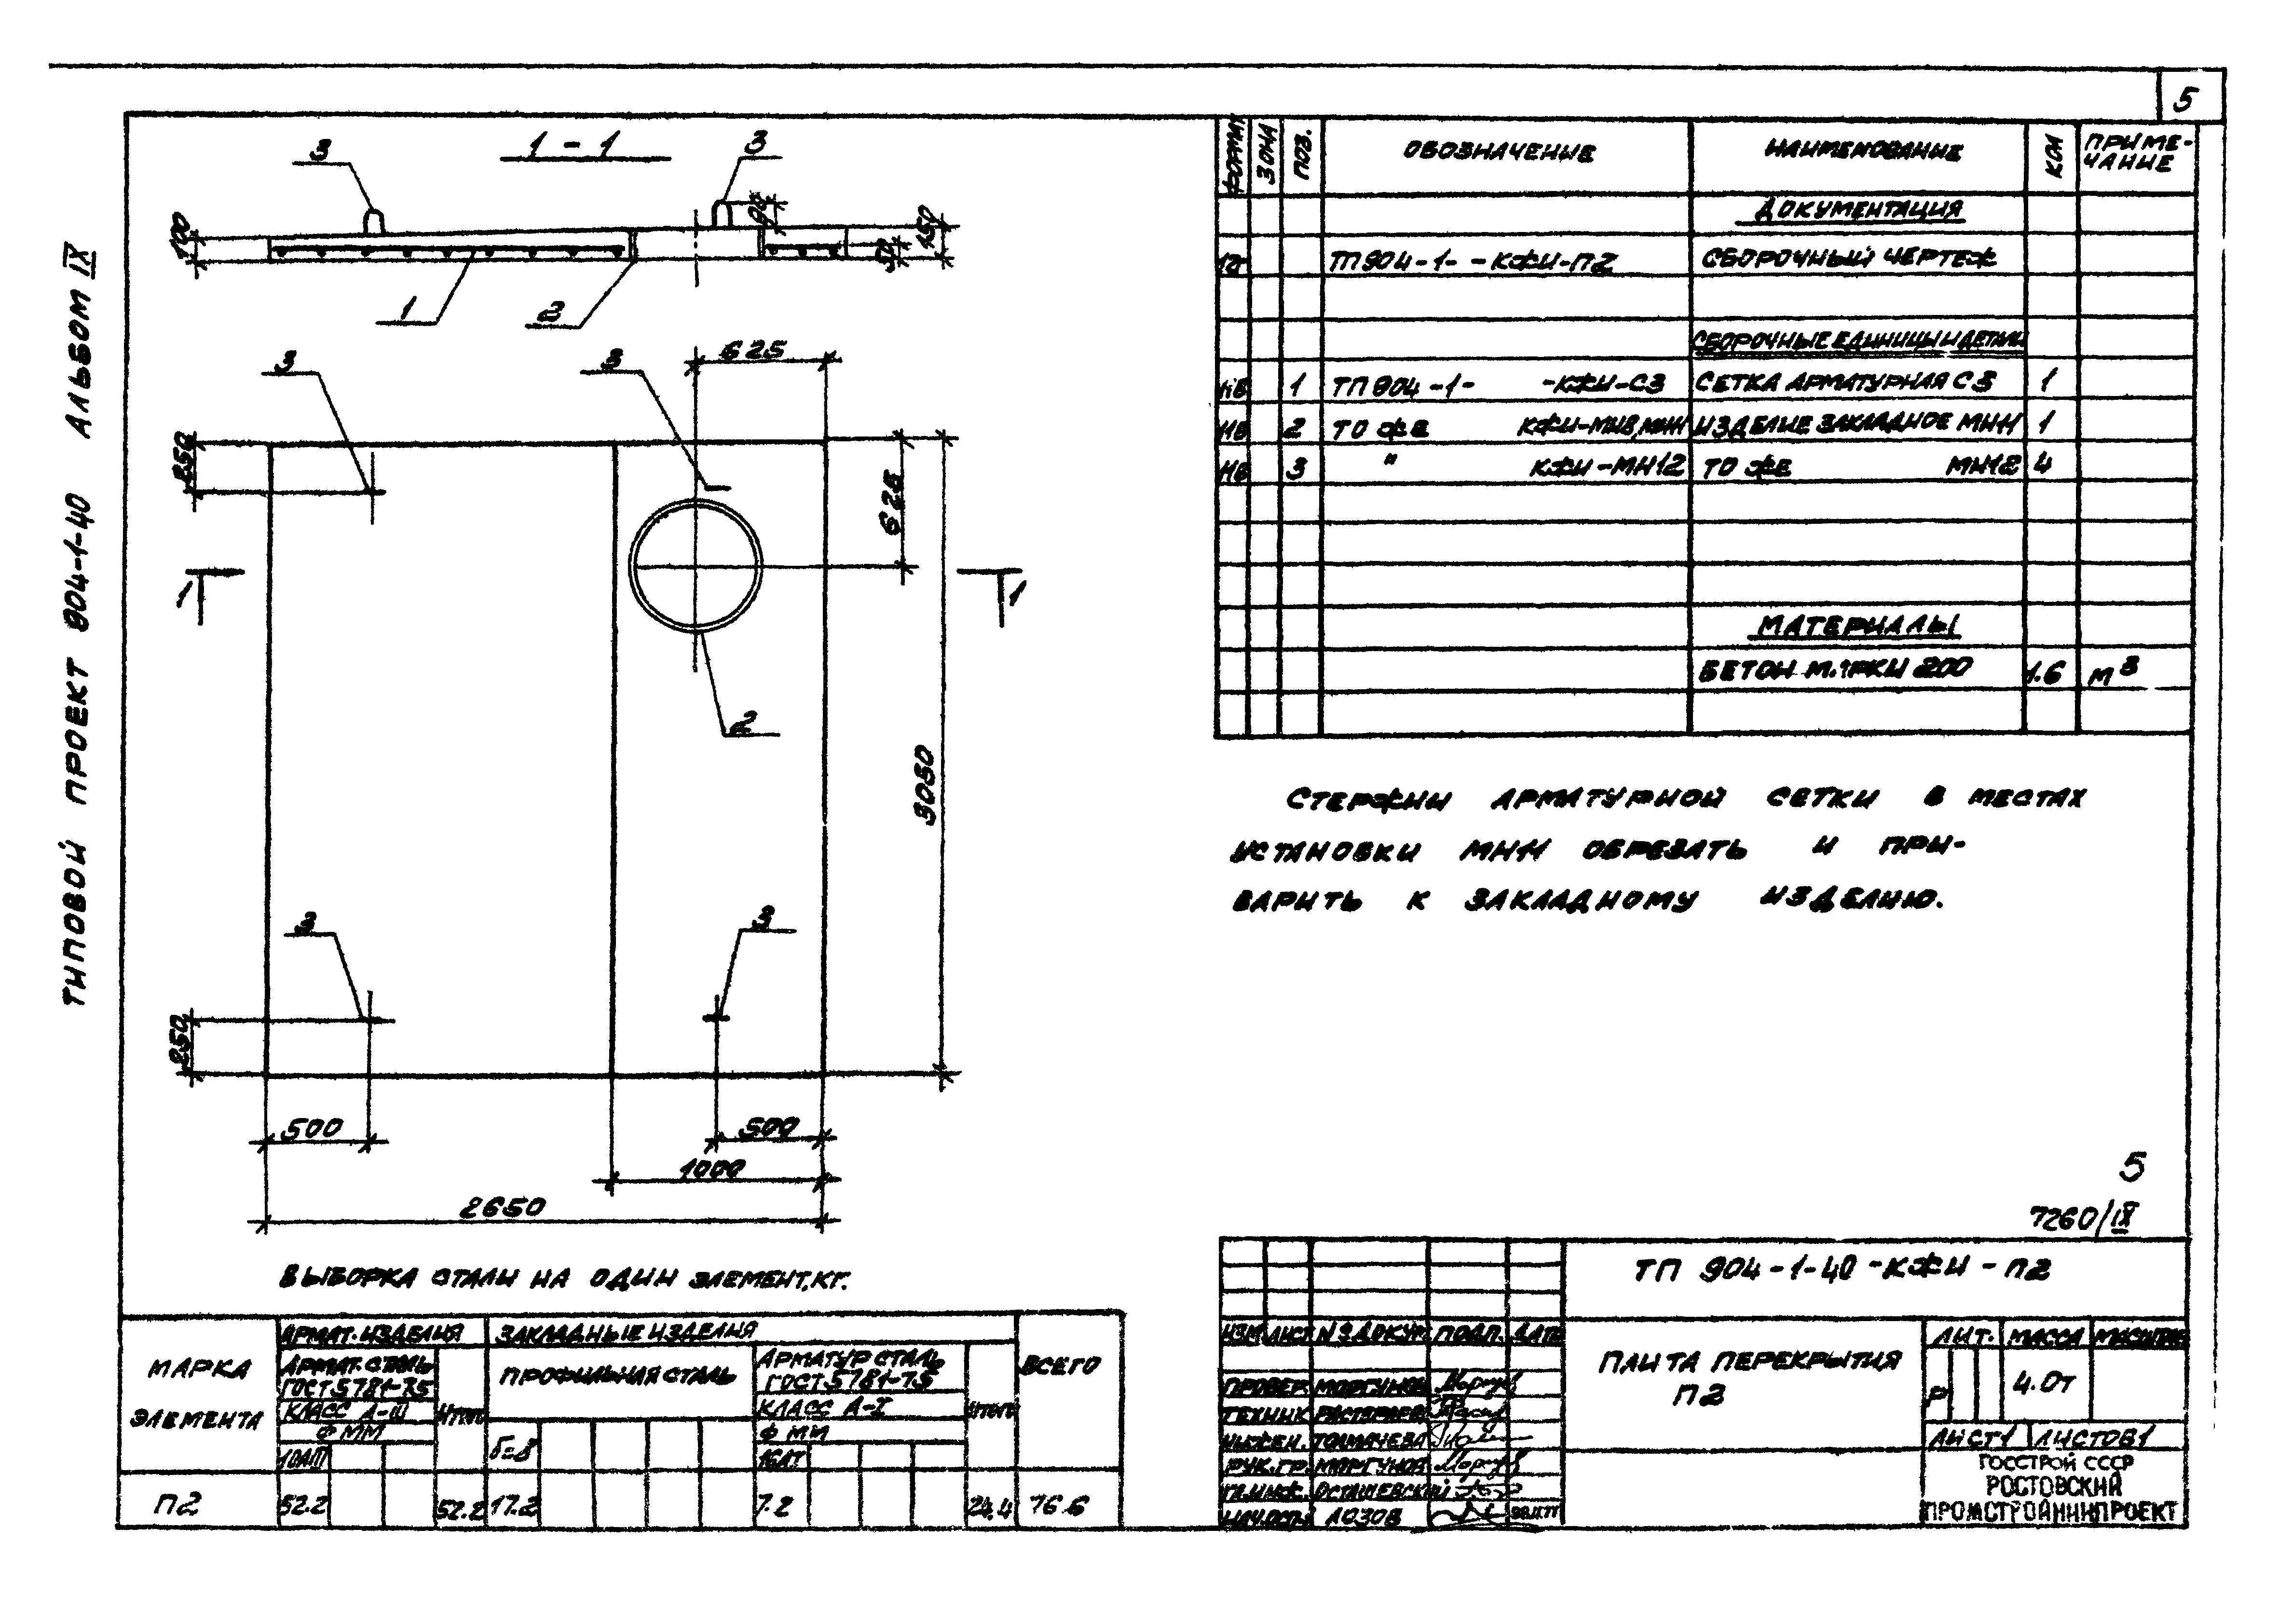 5
ТИПОВОЙ ПРОЕКТ 904-1-40 АЛЬБОМ IX
1-1
3
3
100
150
50
1
2
3
3
625
250
625
1
1
2
3050
3
3
250
500
500
1000
2650
ФОРМАТ ЗОНА ПОЗ. ОБОЗНАЧЕНИЕ НАИМЕНОВАНИЕ КОЛ ПРИМЕ-
ЧАНИЕ
ДОКУМЕНТАЦИЯ
ТП904-1- -КЖИ-П2 СБОРОЧНЫЙ ЧЕРТЕЖ
СБОРОЧНЫЕ ЕДИНИЦЫ И ДЕТАЛИ
1 ТП 904-1- -КЖИ-С3 СЕТКА АРМАТУРНАЯ С3 1
2 ТО ЖЕ ИЗДЕЛИЕ ЗАКЛАДНОЕ МН11 1
3 " КЖИ-МН12 ТО ЖЕ МН12 4
МАТЕРИАЛЫ
БЕТОН МАРКИ 200 1.6 М3
СТЕРЖНИ АРМАТУРНОЙ СЕТКИ В МЕСТАХ
УСТАНОВКИ МН11 ОБРЕЗАТЬ И ПРИ-
ВАРИТЬ К ЗАКЛАДНОМУ ИЗДЕЛИЮ.
5
7260/IX
ВЫБОРКА СТАЛИ НА ОДИН ЭЛЕМЕНТ, КГ.
МАРКА ЭЛЕМЕНТА
АРМАТ. ИЗДЕЛИЯ ЗАКЛАДНЫЕ ИЗДЕЛИЯ ВСЕГО
АРМАТ. СТАЛЬ ГОСТ 5781-75 ИТОГО ПРОФИЛЬНАЯ СТАЛЬ АРМАТУР СТАЛЬ ГОСТ 5781-75 ИТОГО
КЛАСС А-III КЛАСС А-I
Ф ММ Ф ММ
10АIII δ=8
П2 52.2 52.2 17.2 7.2 24.4 76.6
ТП 904-1-40-КЖИ-П2
ИЗМ ЛИСТ N ДОКУМ ПОДП. ДАТА
ПЛИТА ПЕРЕКРЫТИЯ
П2
ЛИТ. МАССА МАСШТАБ
Р 4.0т
ЛИСТ 1 ЛИСТОВ 1
ПРОВЕР. МОРГУНОВ
ТЕХНИК
ИНЖЕН. ТОЛМАЧЕВА
РУК.ГР. МОРГУНОВ
ГЛ.ИНЖ. ОСТАШЕВСКИЙ
НАЧ.ОСТ. ЛОЗОВ
ГОССТРОЙ СССР
РОСТОВСКИЙ
ПРОМСТРОЙНИИПРОЕКТ